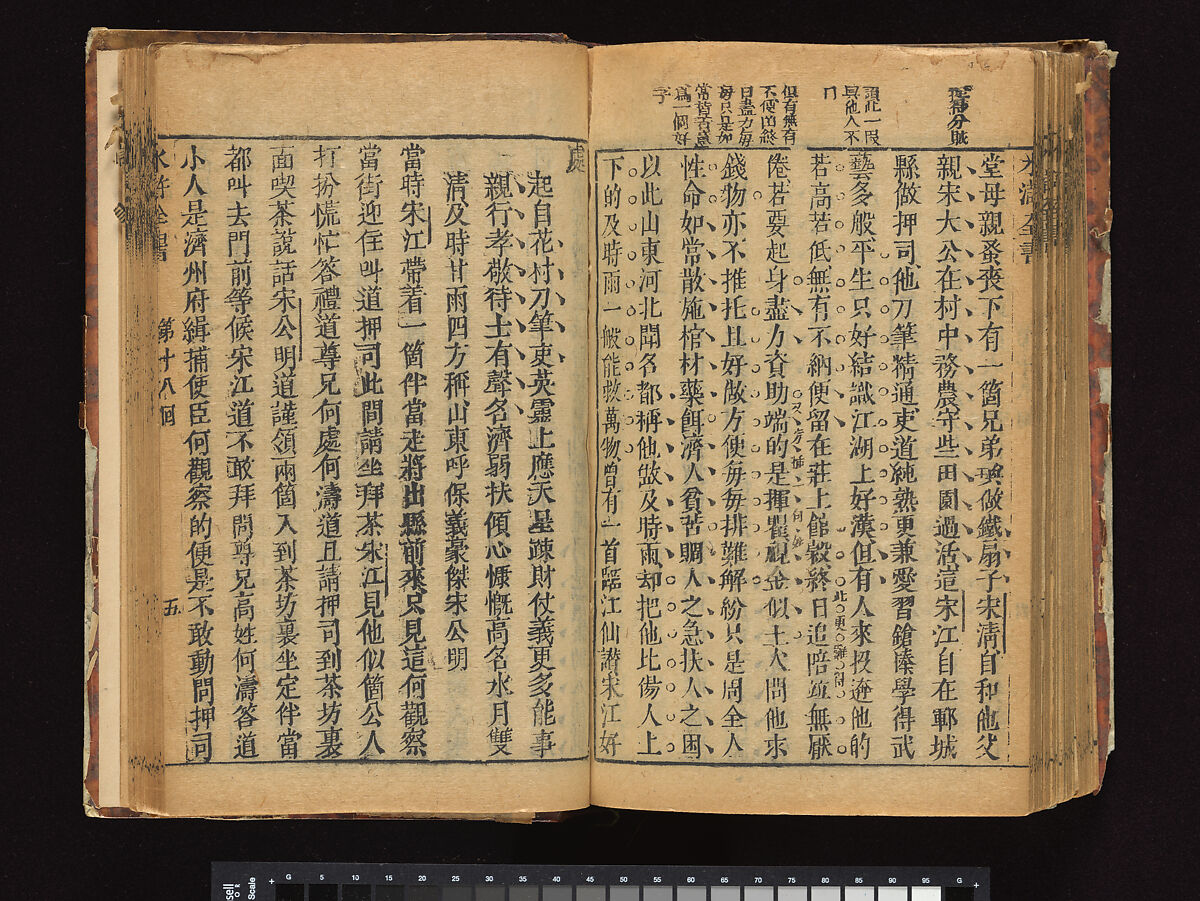 水滸全書
堂母親蚤喪下有一箇兄弟喚做鐵扇子宋淸自和他父
親宋太公在村中務農守些田園過活這宋江自在鄆城
縣做押司他刀筆精通吏道純熟更兼愛習鎗棒學得武
藝多般平生只好結識江湖上好漢但有人來投逩他的
若高若低無有不納便留在莊上館穀終日追陪並無厭
此更難得
倦若要起身盡力資助端的是揮霍視金似土人問他求
錢物亦不推托且好做方便每每排難解紛只是周全人
性命如常散施棺材藥餌濟人貧苦賙人之急扶人之困
以此山東河北聞名都稱他做及時雨却把他比做天上
下的及時雨一般能救萬物曾有一首臨江仙讚宋江好
處
起自花村刀筆吏英靈上應天星疎財仗義更多能事
親行孝敬待士有聲名濟弱扶傾心慷慨高名水月雙
淸及時甘雨四方稱山東呼保義豪傑宋公明
當時宋江帶着一箇伴當走將出縣前來只見這何觀察
當街迎住叫道押司此間請坐拜茶宋江見他似箇公人
打扮慌忙答禮道尊兄何處何濤道且請押司到茶坊裏
面喫茶說話宋公明道謹領兩箇入到茶坊裏坐定伴當
都叫去門前等候宋江道不敢拜問尊兄高姓何濤答道
小人是濟州府緝捕使臣何觀察的便是不敢動問押司
水滸全書
第十八回
五